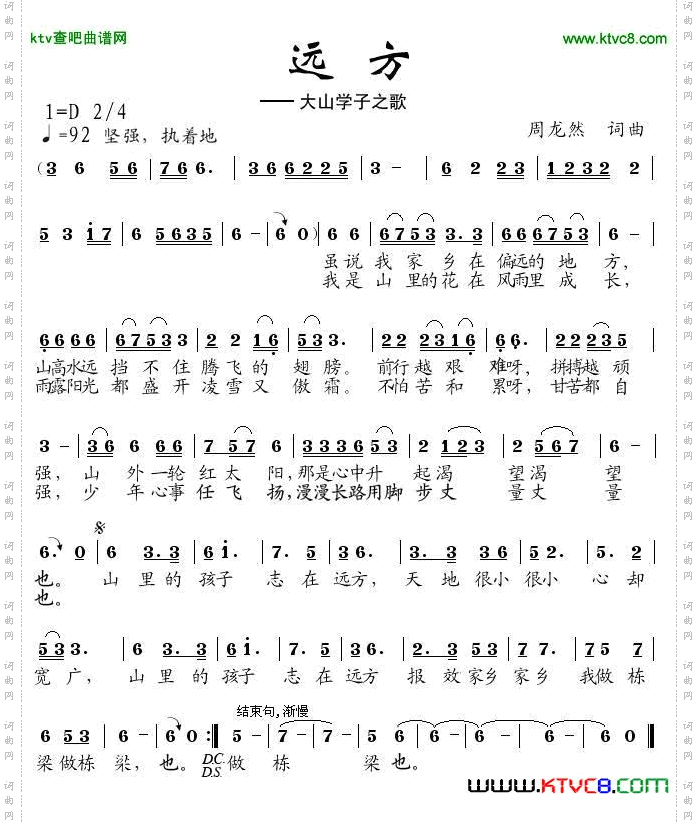 ktv查吧曲谱网
www.ktvc8.com
远方
—— 大山学子之歌
1=D 2/4
♩=92 坚强，执着地
周龙然 词曲
(3 6 56 | 766. | 36 6225 | 3 - | 6 2 23 | 1232 2 |
5 3 i7 | 6 5635 | 6 - | 6 0) | 6 6753 3.3 | 66 6753 | 6 - |
虽说我家乡在偏远的地方，
我是山里的花在风雨里成长，
66 66 | 67533 | 2 2 16 | 533. | 22 2316 | 66. | 22 235 |
山高水远挡不住腾飞的翅膀。前行越艰难呀，拼搏越顽
雨露阳光都盛开凌雪又傲霜。不怕苦和累呀，甘苦都自
3 - | 36 6 66 | 7 57 | 6 333653 | 2 123 | 2 567 | 6 - |
强，山外一轮红太阳，那是心中升起渴望渴望
强，少年心事任飞扬，漫漫长路用脚步丈量丈量
6. 0 | 6 3.3 | 6i. | 7. 5 | 356. | 6. 3 | 33 36 | 52. | 5. 2 |
也。山里的孩子志在远方，天地很小很小心却
也。
533. | 6 3.3 | 6i. | 7. 5 | 356. | 2. 3 57 | 37 7. | 75 7 |
宽广，山里的孩子志在远方报效家乡家乡我做栋
结束句，渐慢
6 53 | 6 - | 6 0 :‖ 5 - | 7 - | 7 - | 5 6 - | 6 - | 6 - | 6 0 ‖
梁做栋梁，也。D.C. 做栋梁也。
D.S.
www.KTVC8.com
词曲网